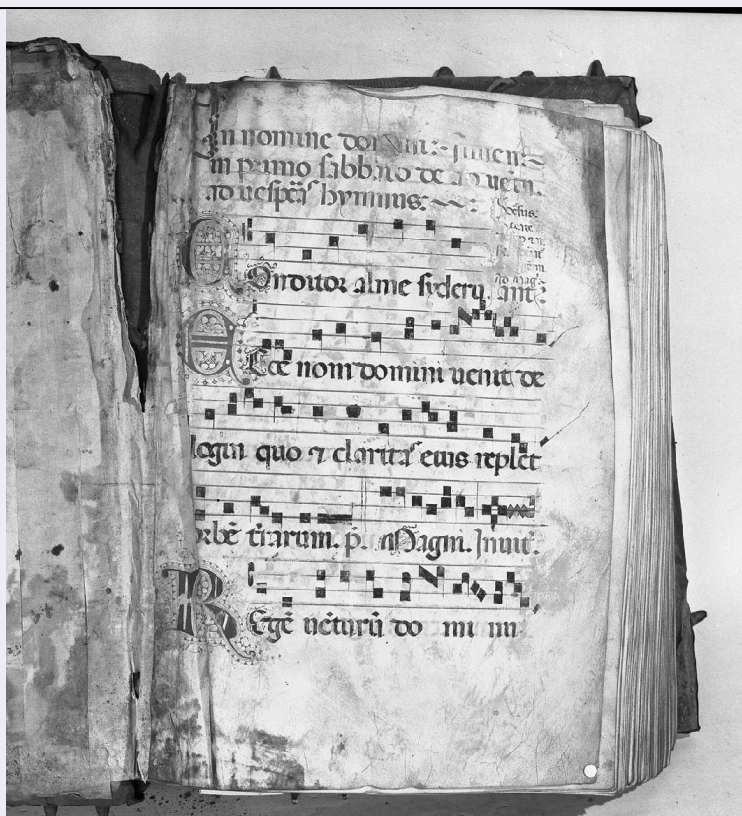 In nomine domini
in primo sabbato de aduetu.
ad uesperas hymnus:
Conditor alme syderu. ant
Ecce nom domini uenit de
login quo ⁊ claritas eius replet
orbe terrarum. p. Magm. Inuit.
Rege ueturu do mi nu